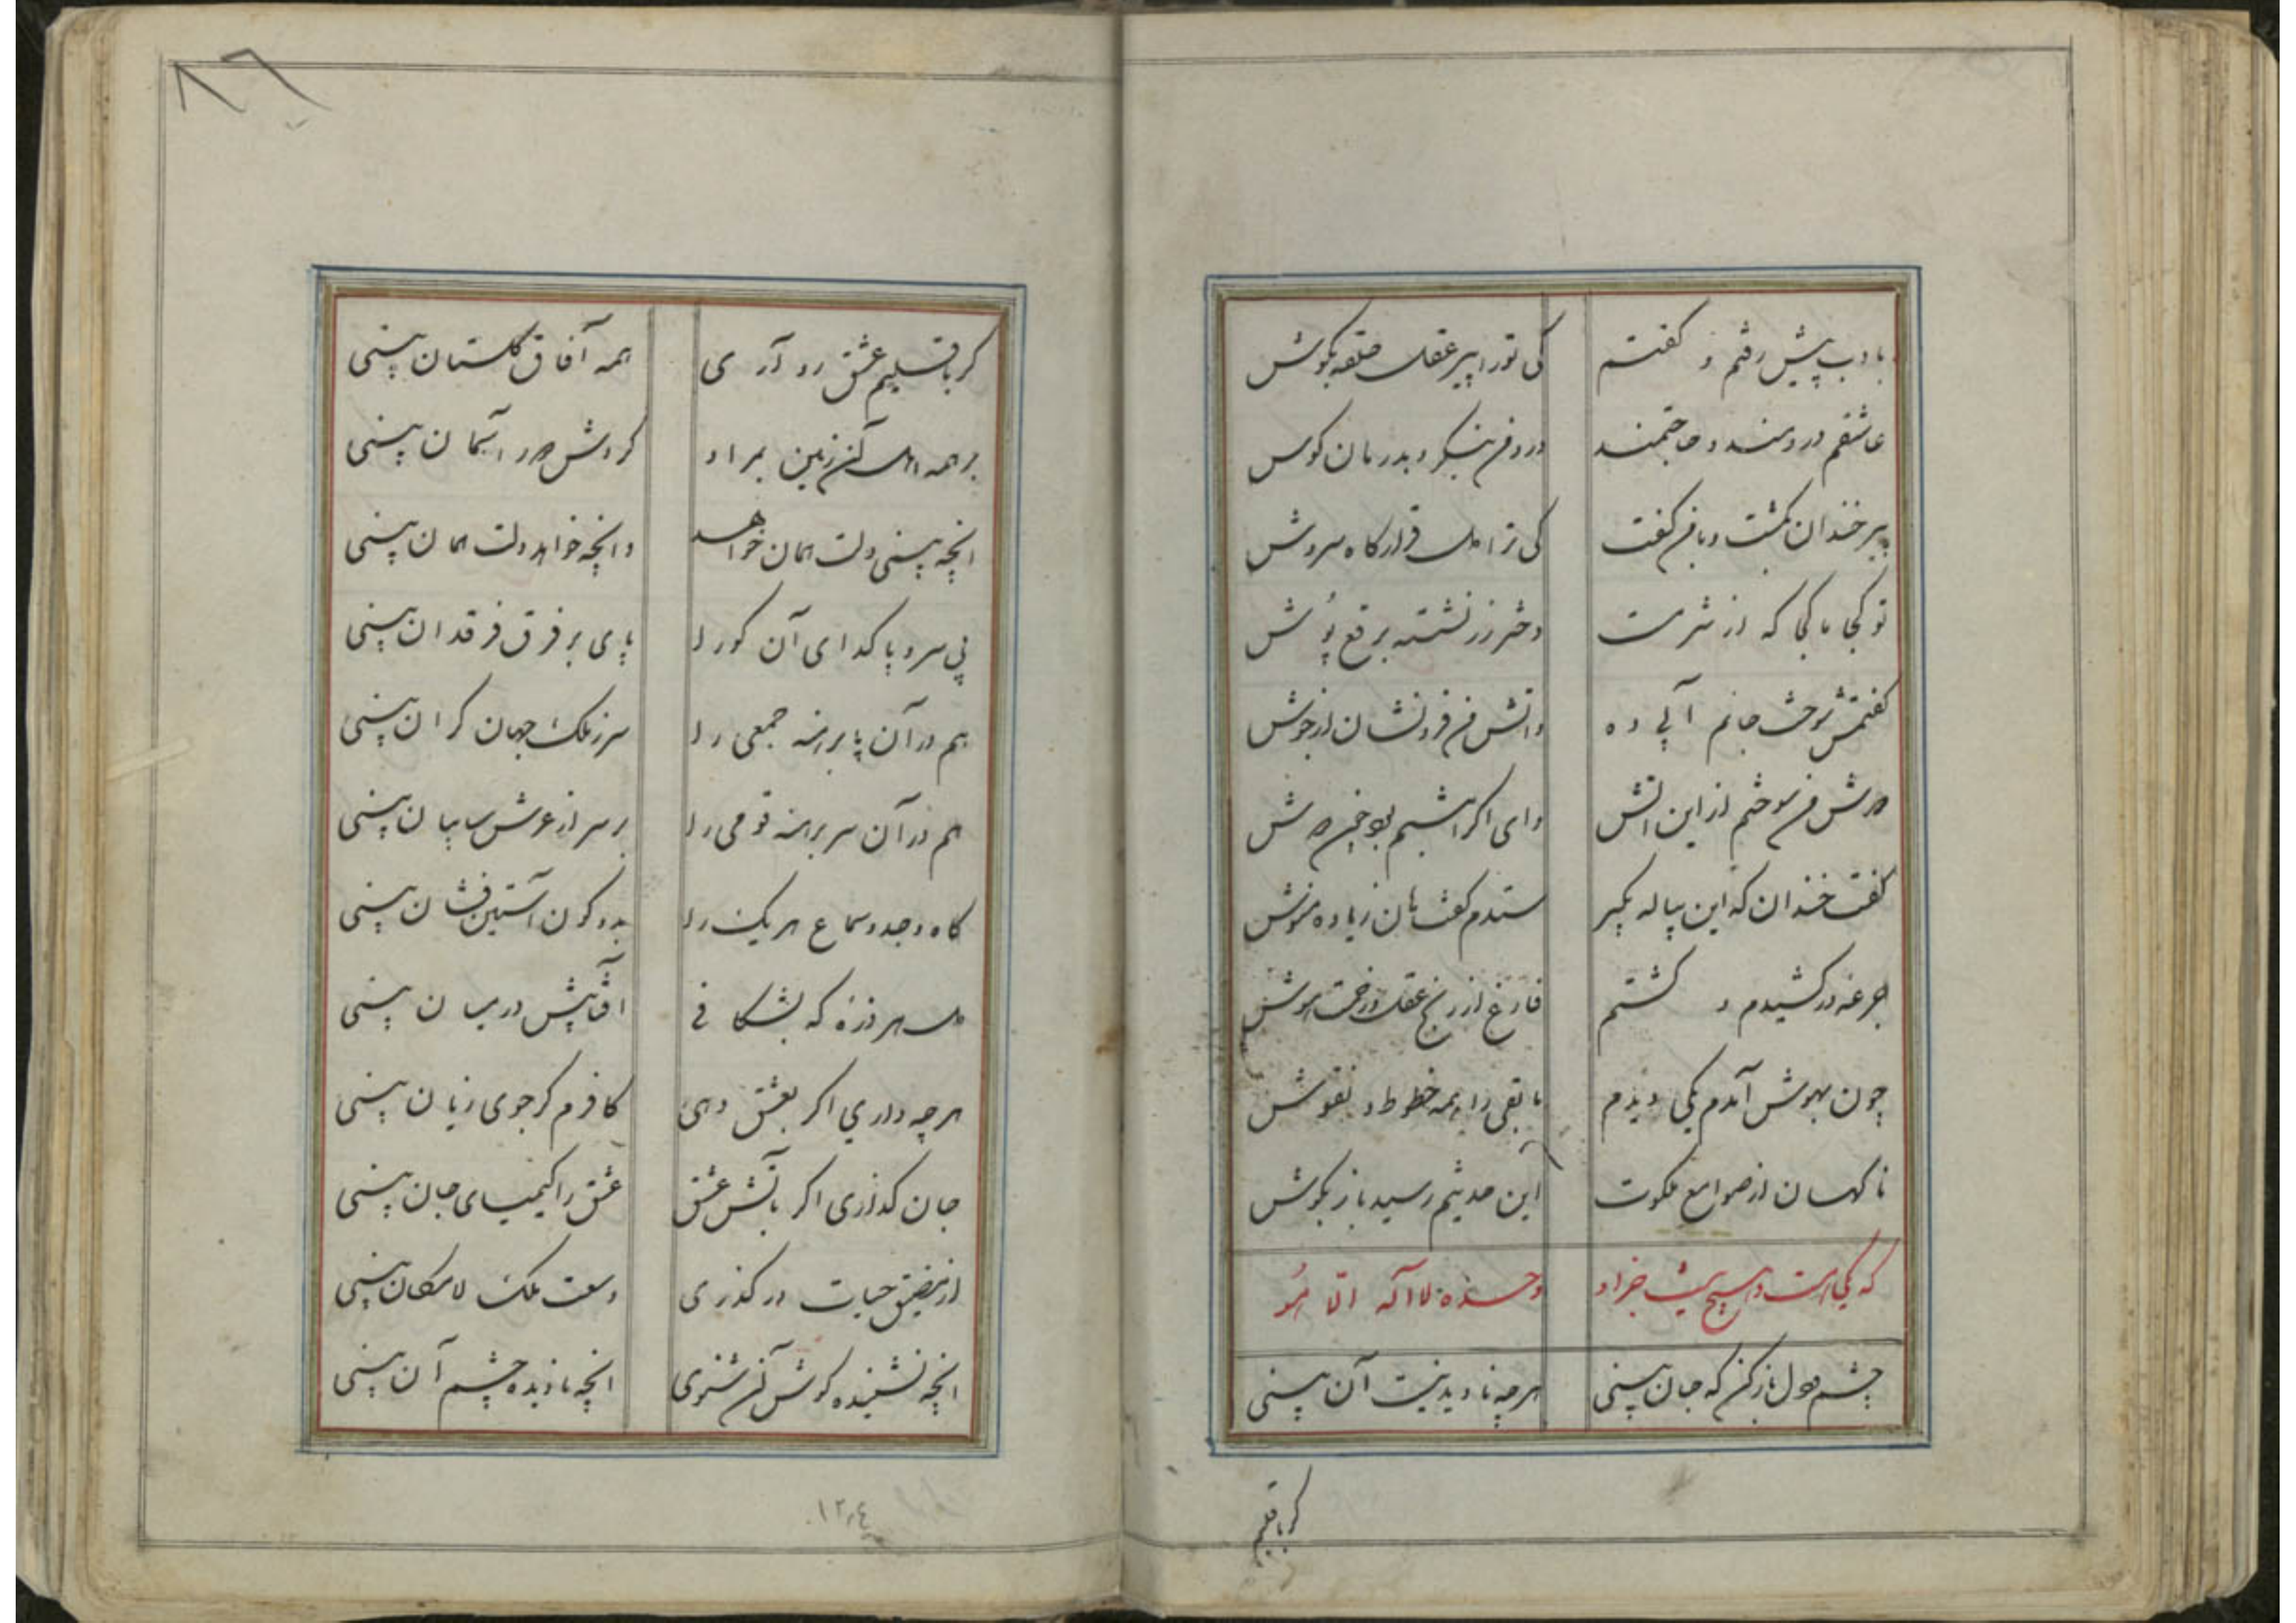 بادب پیش رفتم و گفتم کی تورا پیر عقل حلقه بگوش
عاشقم دردمند و حاجتمند درد من بنگر و بدرمان کوش
پیر خندان گشت و بامن گفت کی ترا دل قرارگاه سروش
تو کجا ما کجا که از شرمت دختر رز نشسته برقع پوش
گفتمش سوخت جانم آبی ده واتش من فرونشان از جوش
دوش من سوختم از این اتش وای اگر امشبم بود چون دوش
گفت خندان که این پیاله بگیر ستدم گفت هان زیاده منوش
جرعه درکشیدم و گشتم فارغ از رنج عقل و زحمت هوش
چون بهوش آمدم یکی دیدم مابقی را همه خطوط و نقوش
ناگهان از صوامع ملکوت این حدیثم رسید باز بگوش
که یکی است و هیچ نیست جز او وحده لا اله الّا هُو
چشم دل باز کن که جان بینی هرچه نادیدنیست آن بینی
گر باقلیم
۸۶
گر باقلیم عشق رو آری همه آفاق گلستان بینی
بر همه اهل آن زمین بمراد گردش دور آسمان بینی
انچه بینی دلت همان خواهد وانچه خواهد دلت همان بینی
بی سر و پا گدای آن کو را پای بر فرق فرقدان بینی
هم در آن پابرهنه جمعی را سر ز ملک جهان گران بینی
هم در آن سر برهنه قومی را بر سر از عرش سایبان بینی
گاه وجد و سماع هر یک را بدو کون آستین فشان بینی
دل هر ذرهٔ که بشکافی آفتابیش در میان بینی
هرچه داری اگر بعشق دهی کافرم گر جوی زیان بینی
جان گذاری اگر بآتش عشق عشق را کیمیای جان بینی
از مضیق حیات درگذری وسعت ملک لامکان بینی
انچه نشنیده گوش آن شنوی انچه نادیده چشم آن بینی
۱۲۰٤